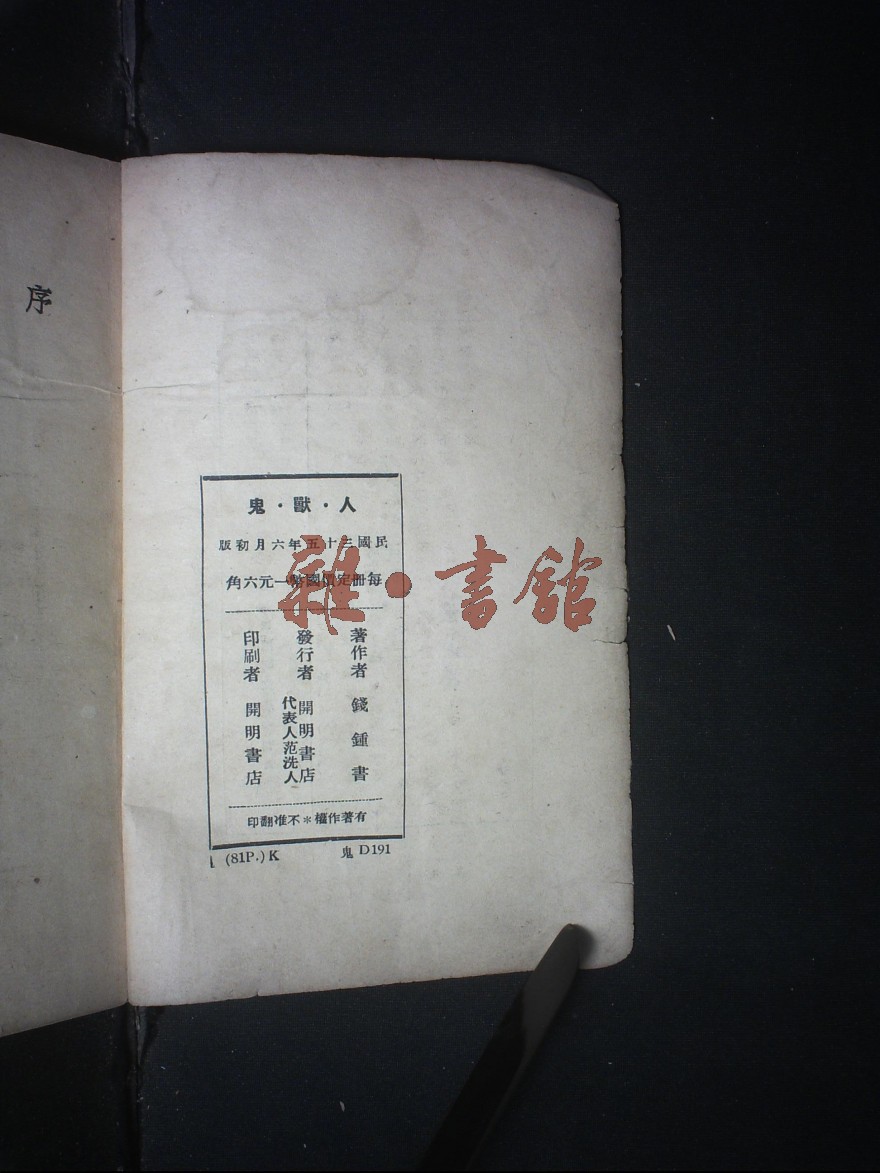 序
人·獸·鬼
民國三十五年六月初版
每冊定價國幣一元六角
著作者 錢鍾書
發行者 開明書店
代表人范洗人
印刷者 開明書店
有著作權＊不准翻印
(81P.) K 鬼 D191
雜·書館